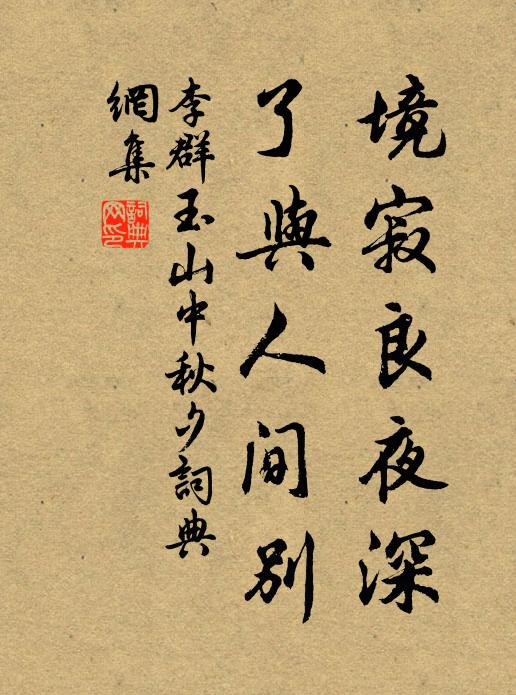 境寂良夜深
了與人間別
李群玉山中秋夕詞典
網集
詞典
网印